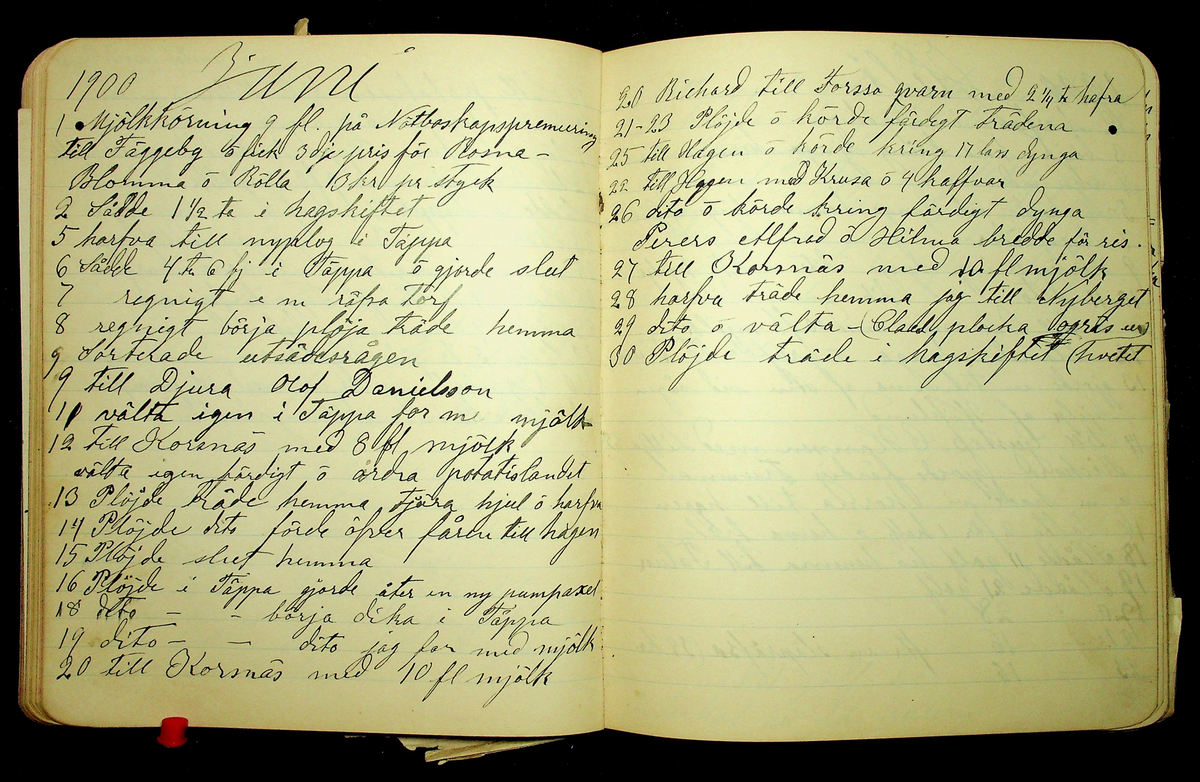 1900 Juni
1 Mjölkkörning 9 fl. på Nötboskapspremiering
till Fäggeby ö fick 3dje pris för Rosna-
Blomma ö Rölla 13 kr pr styck
2 Sådde 1 1/2 ta i hagskiftet
5 harfva till nyplog i Täppa
6 Sådde 4 ta 6 fj i Täppa ö gjorde slut
7 regnigt e m räfsa torf
8 regnigt börja plöja träde hemma
9 Sorterade utsädesrågen
9 till Djura Olof Danielsson
11 välta igen i Täppa for m mjölk
12 till Korsnäs med 8 fl mjölk
välta igen färdigt ö ärdra potatislandet
13 Plöjde träde hemma tjära hjul ö harfva
14 Plöjde dito förde öfver fåren till hagen
15 Plöjde slut hemma
16 Plöjde i Täppa gjorde åter en ny pumpaxel
18 dito - - börja dika i Täppa
19 dito - - dito jag for med mjölk
20 till Korsnäs med 10 fl mjölk
20 Richard till Forssa qvarn med 2 1/4 ta hafra
21-23 Plöjde ö körde färdigt trädena
25 till Hagen ö körde kring 17 lass dynga
22 till Hagen med Krusa ö 4 kalfvar
26 dito ö körde kring färdigt dynga
Perers Alfrad ö Hilma bredde för ris.
27 till Korsnäs med 10 fl mjölk
28 harfva träde hemma jag till Nyberget
29 dito ö välta - (Claes plocka ogräs ur
30 Plöjde träde i hagskiftet (hvetet